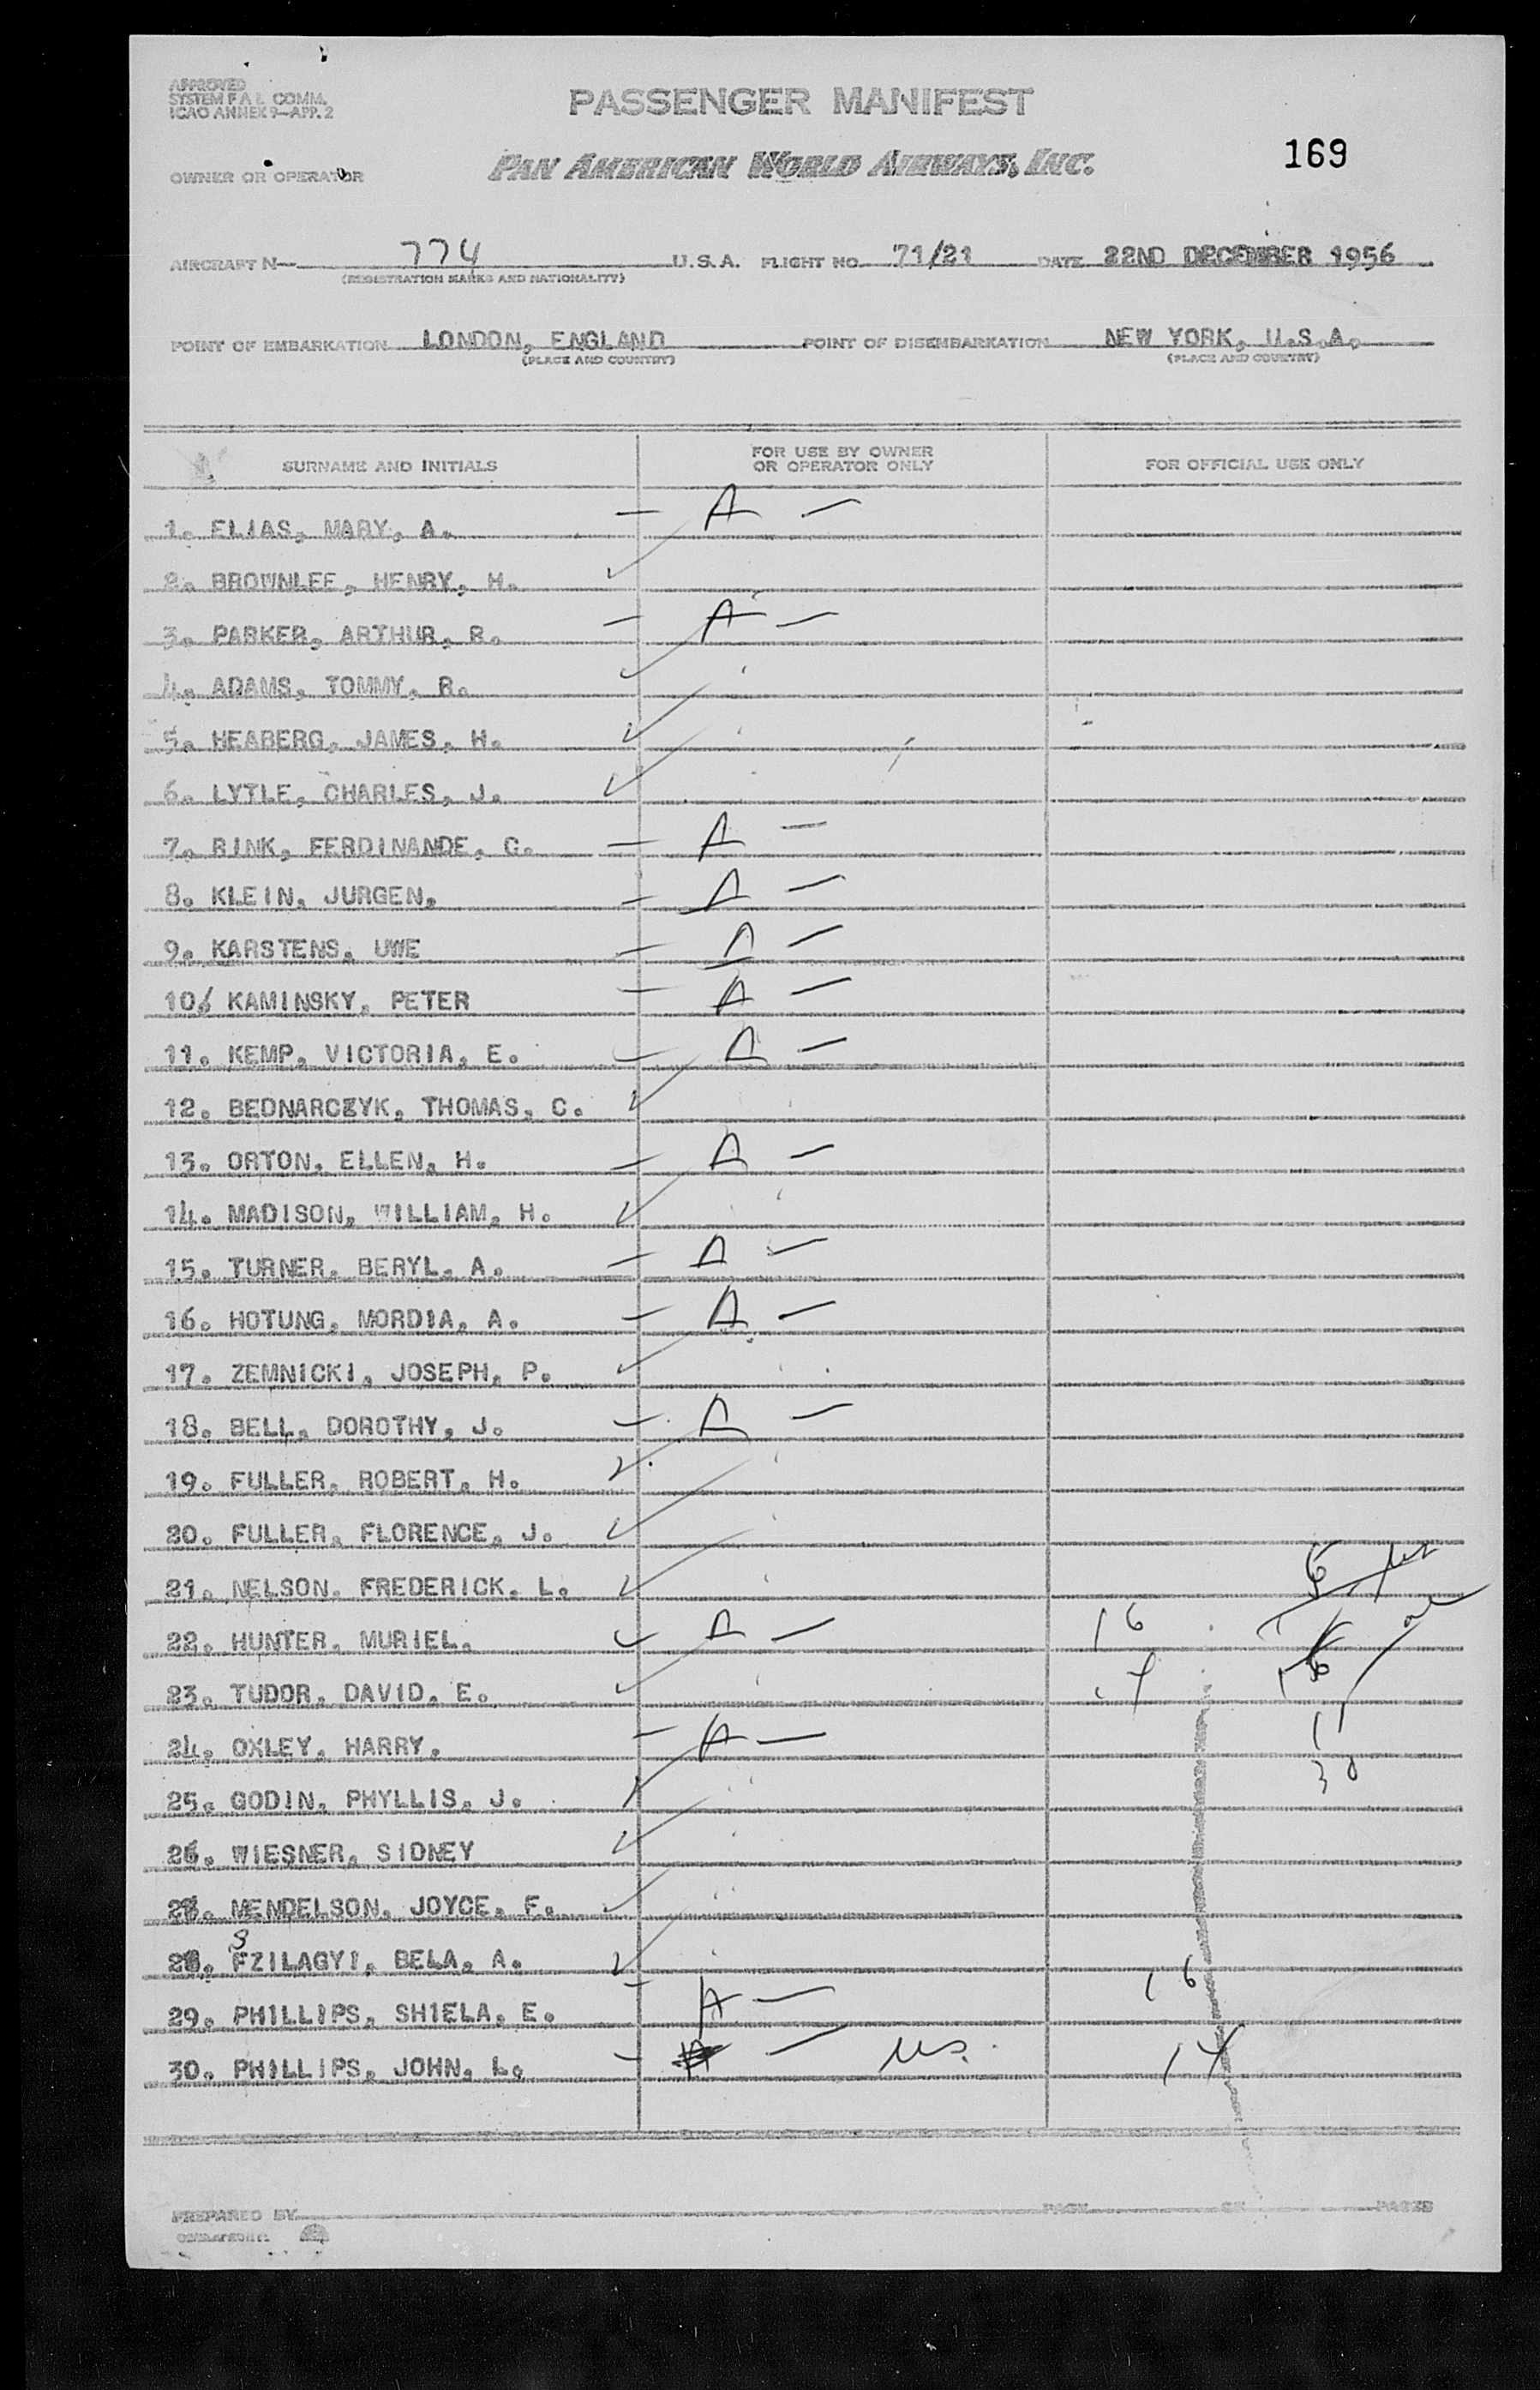 APPROVED
SYSTEM F A L COMM.
ICAO ANNEX 9—APP. 2
PASSENGER MANIFEST
169
OWNER OR OPERATOR
PAN AMERICAN WORLD AIRWAYS, INC.
AIRCRAFT N— 774 U.S.A. FLIGHT NO. 71/21 DATE 22ND DECEMBER 1956
(REGISTRATION MARKS AND NATIONALITY)
POINT OF EMBARKATION LONDON, ENGLAND POINT OF DISEMBARKATION NEW YORK, U.S.A.
(PLACE AND COUNTRY) (PLACE AND COUNTRY)
SURNAME AND INITIALS FOR USE BY OWNER OR OPERATOR ONLY FOR OFFICIAL USE ONLY
1. ELIAS, MARY, A. — A —
2. BROWNLEE, HENRY, H. ✓
3. PARKER, ARTHUR, R. — A —
4. ADAMS, TOMMY, R. ✓
5. HEABERG, JAMES, H. ✓
6. LYTLE, CHARLES, J. ✓
7. RINK, FERDINANDE, G. — A —
8. KLEIN, JURGEN. — A —
9. KARSTENS, UWE — A —
10. KAMINSKY, PETER — A —
11. KEMP, VICTORIA, E. — A —
12. BEDNARCZYK, THOMAS, C. ✓
13. ORTON, ELLEN, H. — A —
14. MADISON, WILLIAM, H. ✓
15. TURNER, BERYL, A. — A —
16. HOTUNG, MORDIA, A. — A —
17. ZEMNICKI, JOSEPH, P. ✓
18. BELL, DOROTHY, J. — A —
19. FULLER, ROBERT, H. ✓
20. FULLER, FLORENCE, J. ✓
21. NELSON, FREDERICK, L. ✓
22. HUNTER, MURIEL. — A — 16
23. TUDOR, DAVID, E. ✓
24. OXLEY, HARRY. — A —
25. GODIN, PHYLLIS, J. ✓ 30
26. WIESNER, SIDNEY ✓
27. MENDELSON, JOYCE, F. ✓
S
28. FZILAGYI, BELA, A. ✓
29. PHILLIPS, SHIELA, E. — A — 16
30. PHILLIPS, JOHN, L. — A — US. 14
PREPARED BY PAGE OF PAGES